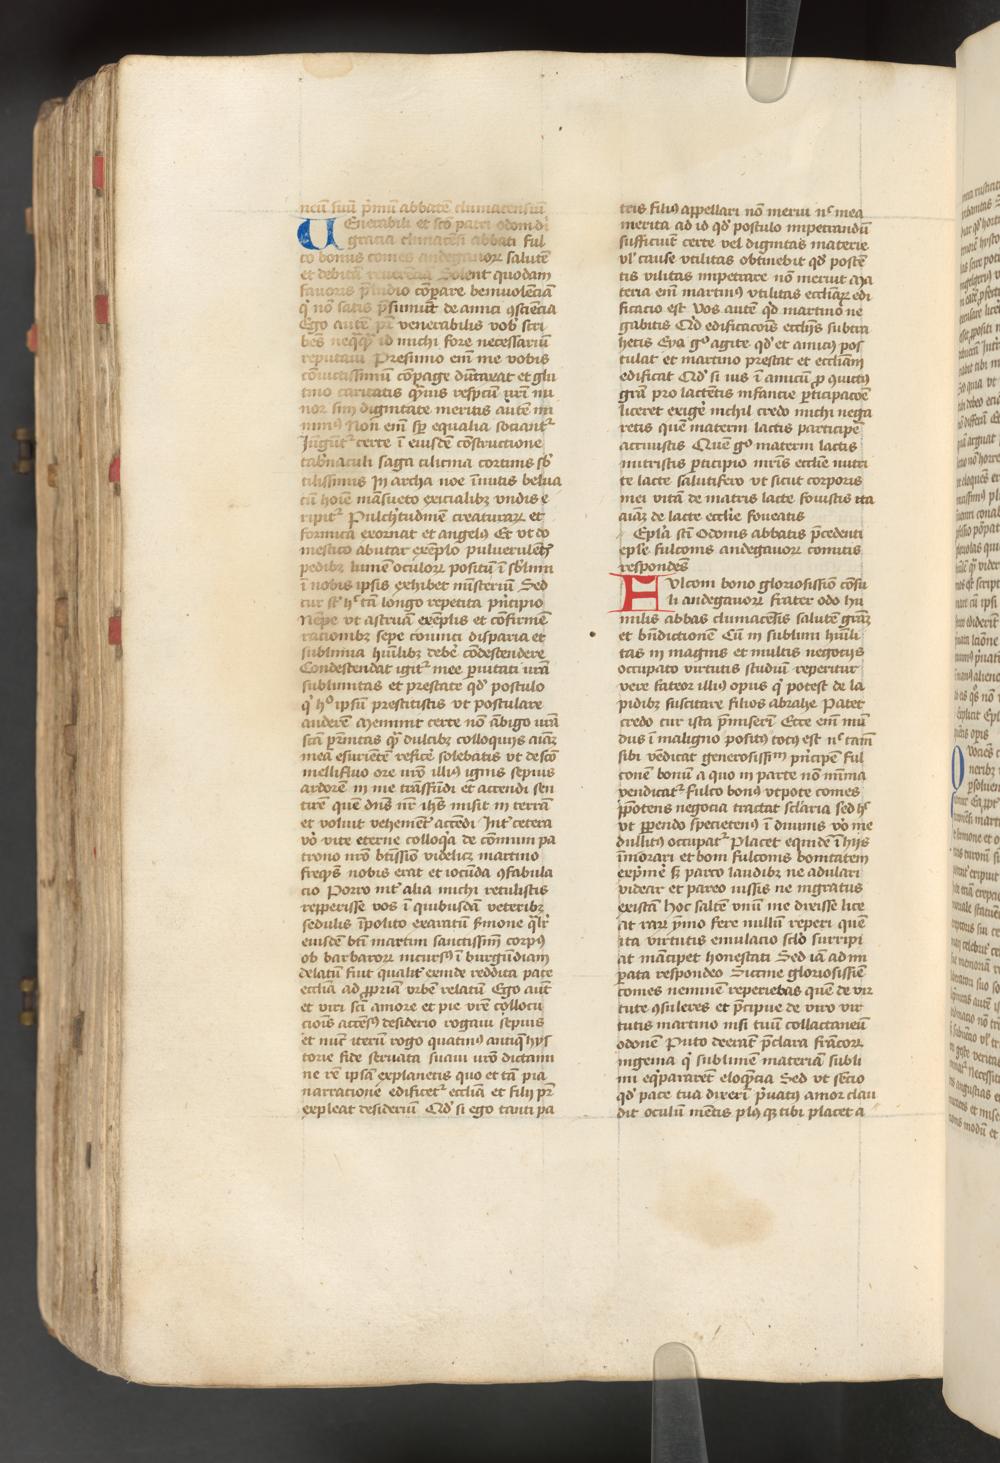 ncū suū p̄mū abbatē cluniacensiū
Uenerabili et scō patri odoni di
gracia cluniacēsi abbati ful
co bonus comes andegauoꝝ salutē
et debitā reuerēciā Solent quodam
fauoris p̄ludio cōpare beniuolēciā
qͥ nō satis p̄sumūt de amici ꝯsciēcia
Ego autē pr̄ venerabilis vob̄ scri
bēs neqͣqͣ id michi fore necessariū
reputaui Presumo eni me vobis
cōiūctissimū cōpage dūtaxat et glu
tino caritatis Qͣmuis respc̄tu vr̄i mi
nor sim dignitate meritis autē mi
nimꝰ Non em̄ sp̄ equalia sociant᷑
Jūgūt᷑ certe ī eiusdē cōstructione
tab̄naculi saga cilicina cortinis sb̄
tilissimis In archa noe īmitis belua
cū hoīe māsueto exicialibꝫ vndis e
ripit᷑ Pulch̓tudinē creaturaꝝ et
formica exornat et angelꝰ Et vt do
mestico abutar exēplo puluerulētꝭ
pedibꝫ lumē oculoꝝ positū ī sb̄limi
ī nobis ipsis exhibet mīsteriū Sed
cur sꝫ hͨ tā longo repetita pͥncipio
Nēpe vt astruā exēplis et cōfirmē
racionibꝫ sepe cōiunci disparia et
sublimia hūilibꝫ debē cōdescendere
Condescendat igit᷑ mee p̄uitati vr̄a
sublimitas et prestate qd̓ postulo
qͥ hͦ ipsū prestitistis vt postulare
auderē Meminit certe nō ābigo vr̄a
scā pr̄nitas qͣ dulcibꝫ colloquijs aīaꝫ
meā esuriētē reficē solebatis vt de scō
mellifluo ore vr̄o illiꝰ ignis sepius
ardorē in me trāsfūdi et accendi sen
tirē quē dn̄s nr̄ ih̄s misit in terrā
et voluit vehemēt᷑ accēdi Int᷑ cetera
vͦo vite eterne colloqͥa de cōmuni pa
trono nr̄o btīssīo videlicꝫ martino
freqn̄s nobis erat et iocūda ꝯfabula
cio Porro int᷑ alia michi retulistis
repperisse vos ī quibusdā veteribꝫ
sedulis īpolito exaratū sermone qͣlr̄
eiusdē bt̄i martini sanctissimi corpꝰ
ob barbaroꝝ incursꝰ ī burgūdiam
delatū fiut qualit᷑ exinde reddita pace
eccl̄iā ad ꝓpriā vrbē relatū Ego autē
et viri sc̄i amore et pie vr̄e collocu
cionis accēsꝰ desiderio rogaui sepius
et nūc iterū rogo quatinꝰ antiqͣ hys
torie fide seruata suaui vr̄o dictami
ne rē ipsā explanetis quo et tā pia
narracione edificet᷑ eccl̄ia et filij pr̄
expleat desideriū Qd̓ si ego tanti pa
tris filiꝰ appellari nō merui nͨ mea
merita ad id qd̓ postulo impetrandū
sufficiūt certe vel dignitas materie
vl̓ cause vtilitas obtinebit qd̓ postē
tis vilitas impetrare nō meruit Ma
teria em̄ martinꝰ vtilitas eccl̄iaꝝ edi
ficacio est Vos autē qd̓ martino ne
gabitis Qd̓ edificacōis eccl̄ijs subtra
hetis Eya gͦ agite qd̓ et amicꝰ pos
tulat et martino prestat et eccl̄iam
edificat Qd̓ si ius ī amicū ꝓ ꝯuictꝰ
grā pro lactētis infantie p̄ticipacōe
liceret exigē nichil credo michi nega
retis quē materni lactis participē
asciuistis Quē gͦ materni lactis
nutristis p̄ticipio mr̄is eccl̄ie nutri
te lacte salutifero vt sicut corporis
mei vitā de matris lacte fouistis ita
aīaꝫ de lacte eccl̄ie foueatis
Epl̄a sc̄i Odonis abbatis p̄cedenti
epl̄e fulconis andegauoꝝ comitis
respondēs
Fulconi bono gloriosissīo cōsu
li andegauoꝝ frater odo hu
milis abbas cluniacēsis salutē grāꝫ
et bn̄dictionē Cū in sublimi hūili
tas in magnis et multis negocijs
occupato virtutis studiū reperitur
vere fateor illiꝰ opus qͥ potest de la
pidibꝫ suscitare filios abrahe Patet
credo cur ista p̄miserī Ecce em̄ mū
dus ī maligno positꝰ totꝰ est nͨ tam̄
sibi vēdicat generosissimū pͥncipem ful
conē bonū a quo in parte nō minima
vendicat᷑ Fulco bonꝰ vtpote comes
p̄potens negocia tractat sclaria sed hͨ
vt ꝑpendo specietenꝰ ī diuinis vͦo me
dullitꝰ occupat᷑ Placet equidē ī hijs
īmorari et boni fulconis bonitatem
exp̄mē sꝫ parco laudibꝫ ne adulari
videar et pareo iussis ne ingratus
existā Hoc saltē vnū me dixisse lice
at raꝝ ymo fere nullū reperi quē
ita virtutis emulacio sclo surripi
at mācipet honestati Sed iā ad im
p̄ata respondeo Siccine gloriosissīe
comes neminē reperiebas quē de vir
tute ꝯsuleres et p̄cipue de viro vir
tutis martino nisi tuū collactaneū
odonē Puto deerāt p̄clara francoꝝ
ingenia qͥ sublimē materiā subli
mi eqͥpararēt eloqͣēcia Sed vt sc̄cio
qd̓ pace tua dixeri p̄uatꝰ amor clau
dit oculū mētis plꝰ qꝫ tibi placet a